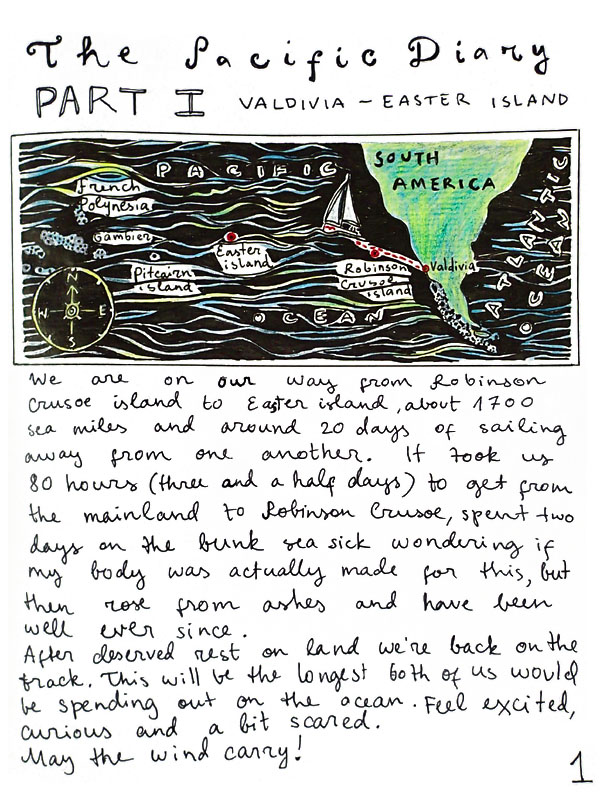 The Pacific Diary
PART I VALDIVIA – EASTER ISLAND
PACIFIC
SOUTH
AMERICA
ATLANTIC
OCEAN
French
Polynesia
Gambier
Easter
island
Pitcairn
island
Robinson
Crusoe
island
Valdivia
OCEAN
N
W E
S
We are on our way from Robinson
Crusoe island to Easter island, about 1700
sea miles and around 20 days of sailing
away from one another. It took us
80 hours (three and a half days) to get from
the mainland to Robinson Crusoe, spent two
days on the bunk sea sick wondering if
my body was actually made for this, but
then rose from ashes and have been
well ever since.
After deserved rest on land we're back on the
track. This will be the longest both of us would
be spending out on the ocean. Feel excited,
curious and a bit scared.
May the wind carry!
1